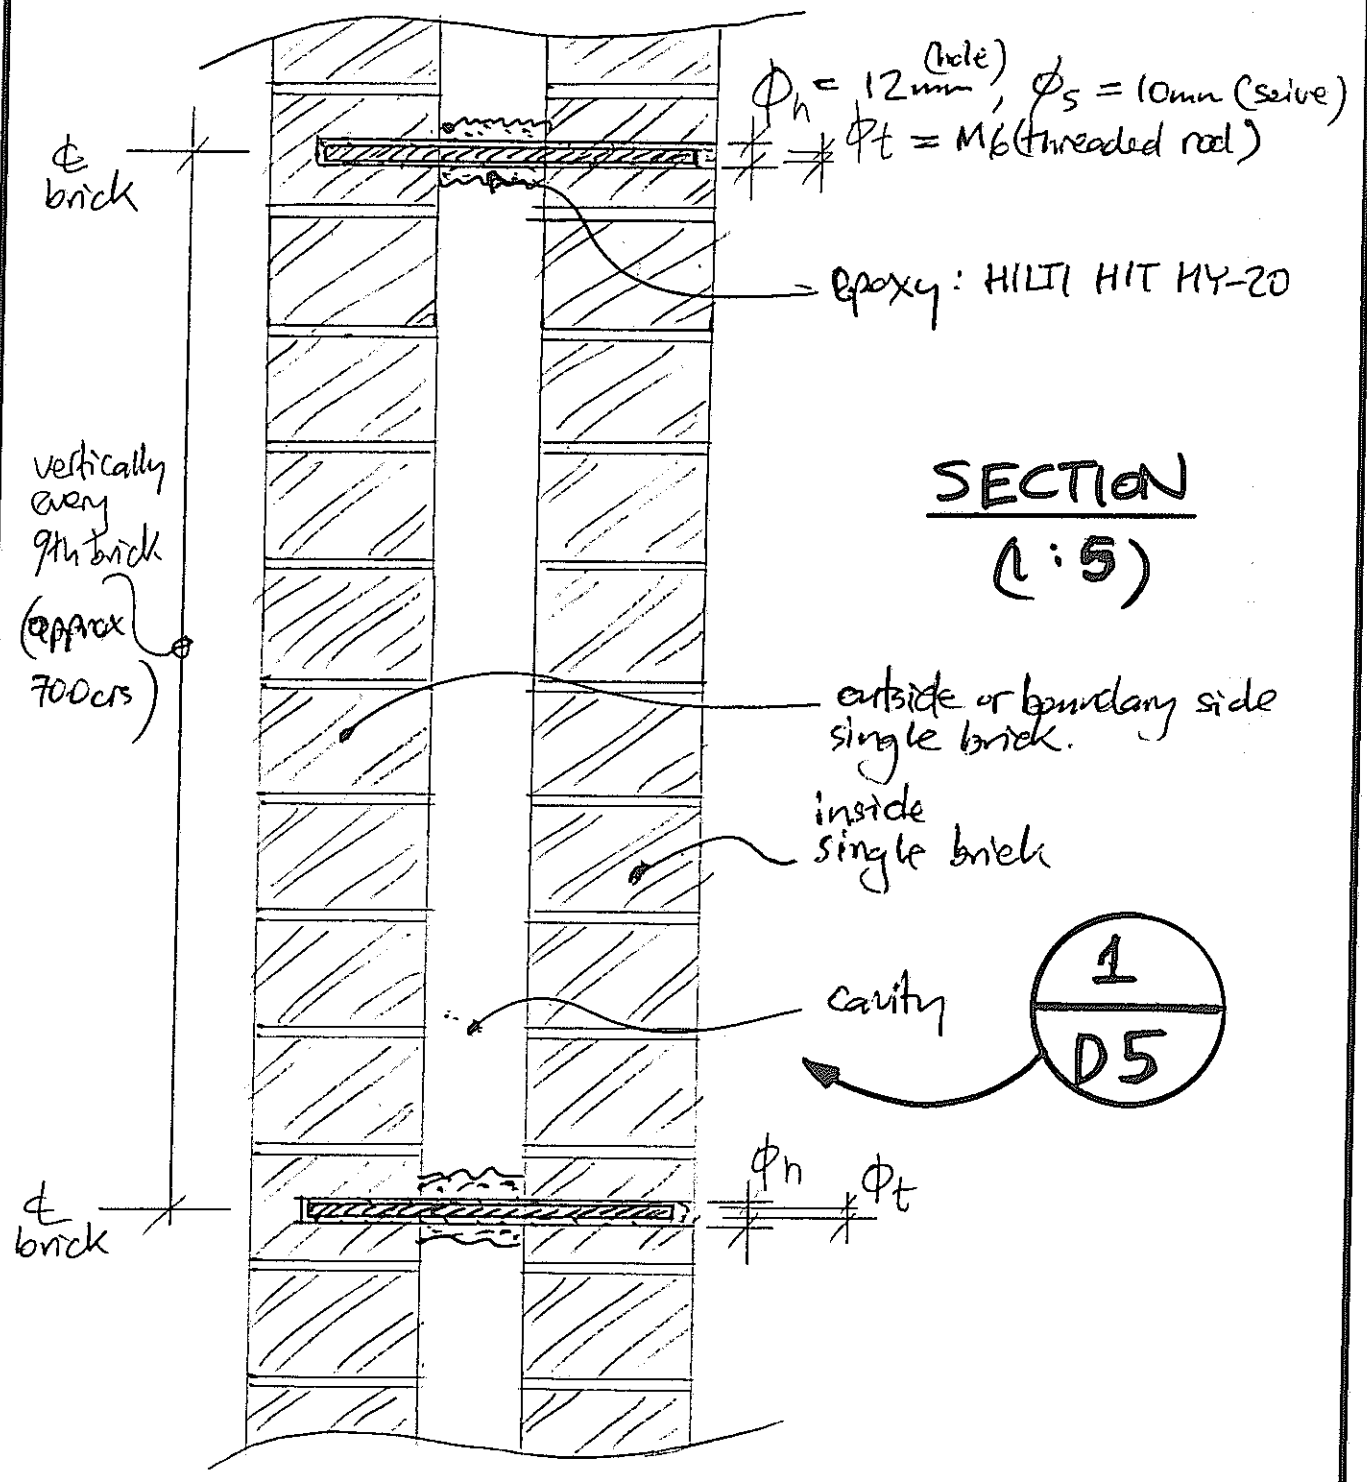 ϕh = 12mm (hole), ϕs = 10mm (seive)
ϕt = M6 (threaded rod)
℄
brick
epoxy: HILTI HIT HY-20
vertically
every
9th brick
(approx
700crs)
SECTION
(1:5)
outside or boundary side
single brick.
inside
single brick
cavity
1
D5
ϕh
ϕt
℄
brick